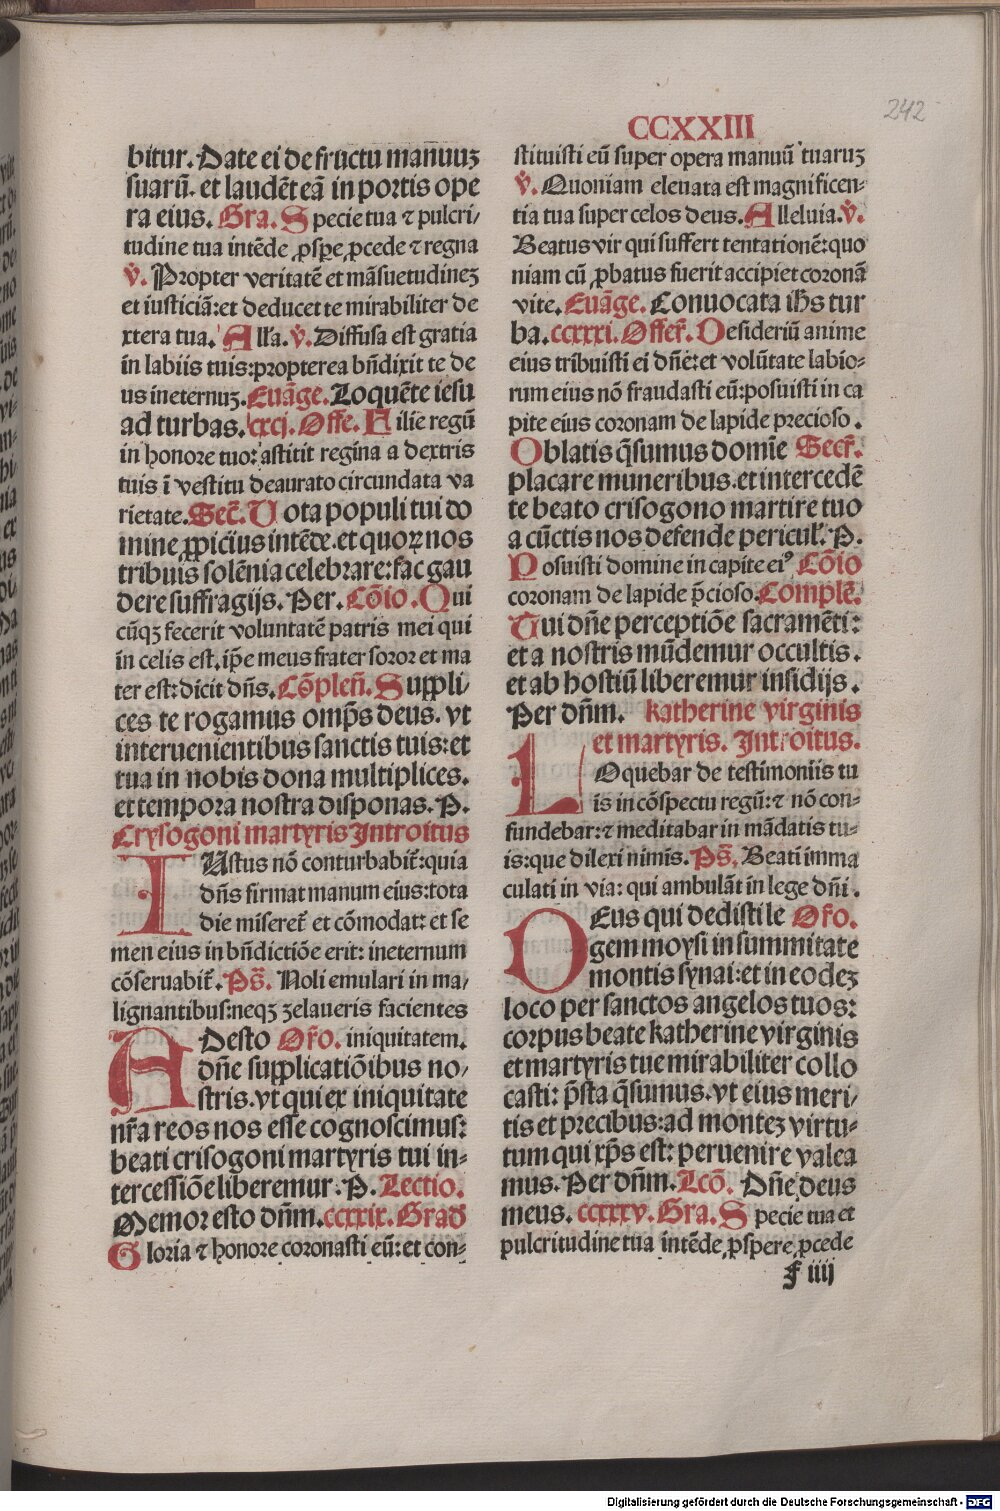 242
CCXXIII
bitur. Date ei de fructu manuuꝫ
suarū. et laudēt eā in portis ope
ra eius. Gra. Specie tua ⁊ pulcri/
tudine tua intēde ꝓsꝑe ꝓcede ⁊ regna
v̄. Propter veritatē et māsuetudineꝫ
et iusticiā: et deducet te mirabiliter de
xtera tua. Allʼa. v̄. Diffusa est gratia
in labiis tuis: propterea bn̄dixit te de
us ineternuꝫ. Euāge. Loquēte iesu
ad turbas. cxcj. Offe. Filie regū
in honore tuo: astitit regina a dextris
tuis ī vestitu deaurato circundata va
rietate. Sec̄. Uota populi tui do
mine ꝓpicius intēde. et quoꝝ nos
tribuis solēnia celebrare: fac gau
dere suffragijs. Per. Cōio. Qui
cūqꝫ fecerit voluntatē patris mei qui
in celis est. ip̄e meus frater soror et ma
ter est: dicit dn̄s. Cōplen̄. Suppli/
ces te rogamus omp̄s deus. vt
interuenientibus sanctis tuis: et
tua in nobis dona multiplices.
et tempora nostra disponas. P.
Crysogoni martyris Introitus
IUstus nō conturbabit̄: quia
dn̄s firmat manum eius: tota
die miseret̄ et cōmodat: et se
men eius in bn̄dictiōe erit: ineternum
cōseruabit̄. Ps̄. Noli emulari in ma/
lignantibus: neqꝫ zelaueris facientes
ADesto Or̄o. iniquitatem.
dn̄e supplicatiōibus no/
stris. vt qui ex iniquitate
nr̄a reos nos esse cognoscimus:
beati crisogoni martyris tui in-
tercessiōe liberemur. P. Lectio.
Memor esto dn̄m. ccxxix. Grad
Gloria ⁊ honore coronasti eū: et con-
stituisti eū super opera manuū tuaruꝫ
v̄. Quoniam eleuata est magnificen-
tia tua super celos deus. Alleluia. v̄.
Beatus vir qui suffert tentationē: quo
niam cū ꝓbatus fuerit accipiet coronā
vite. Euāge. Conuocata ih̄s tur
ba. ccxxxi. Offer̄. Desideriū anime
eius tribuisti ei dn̄e: et volūtate labio-
rum eius nō fraudasti eū: posuisti in ca
pite eius coronam de lapide precioso.
Oblatis q̄sumus domīe Secr̄.
placare muneribus. et intercedē
te beato crisogono martire tuo
a cūctis nos defende pericul'. P.
Posuisti domine in capite eiꝰ Cōio
coronam de lapide p̄cioso. Complē.
Tui dn̄e perceptiōe sacramēti:
et a nostris mūdemur occultis.
et ab hostiū liberemur insidijs.
Per dn̄m. Katherine virginis
et martyris. Introitus.
LOquebar de testimoniis tu
is in cōspectu regū: ⁊ nō con-
fundebar: ⁊ meditabar in mādatis tu-
is: que dilexi nimis. Ps̄. Beati imma
culati in via: qui ambulāt in lege dn̄i.
DEus qui dedisti le Or̄o.
gem moysi in summitate
montis synai: et in eodeꝫ
loco per sanctos angelos tuos:
corpus beate katherine virginis
et martyris tue mirabiliter collo
casti: p̄sta q̄sumus. vt eius meri/
tis et precibus: ad monteꝫ virtu-
tum qui xp̄s est: peruenire valea
mus. Per dn̄m. Lcō. Dn̄e deus
meus. ccxxxv. Gra. Specie tua et
pulcritudine tua intēde, ꝓspere ꝓcede
f iiij
Digitalisierung gefördert durch die Deutsche Forschungsgemeinschaft - DFG